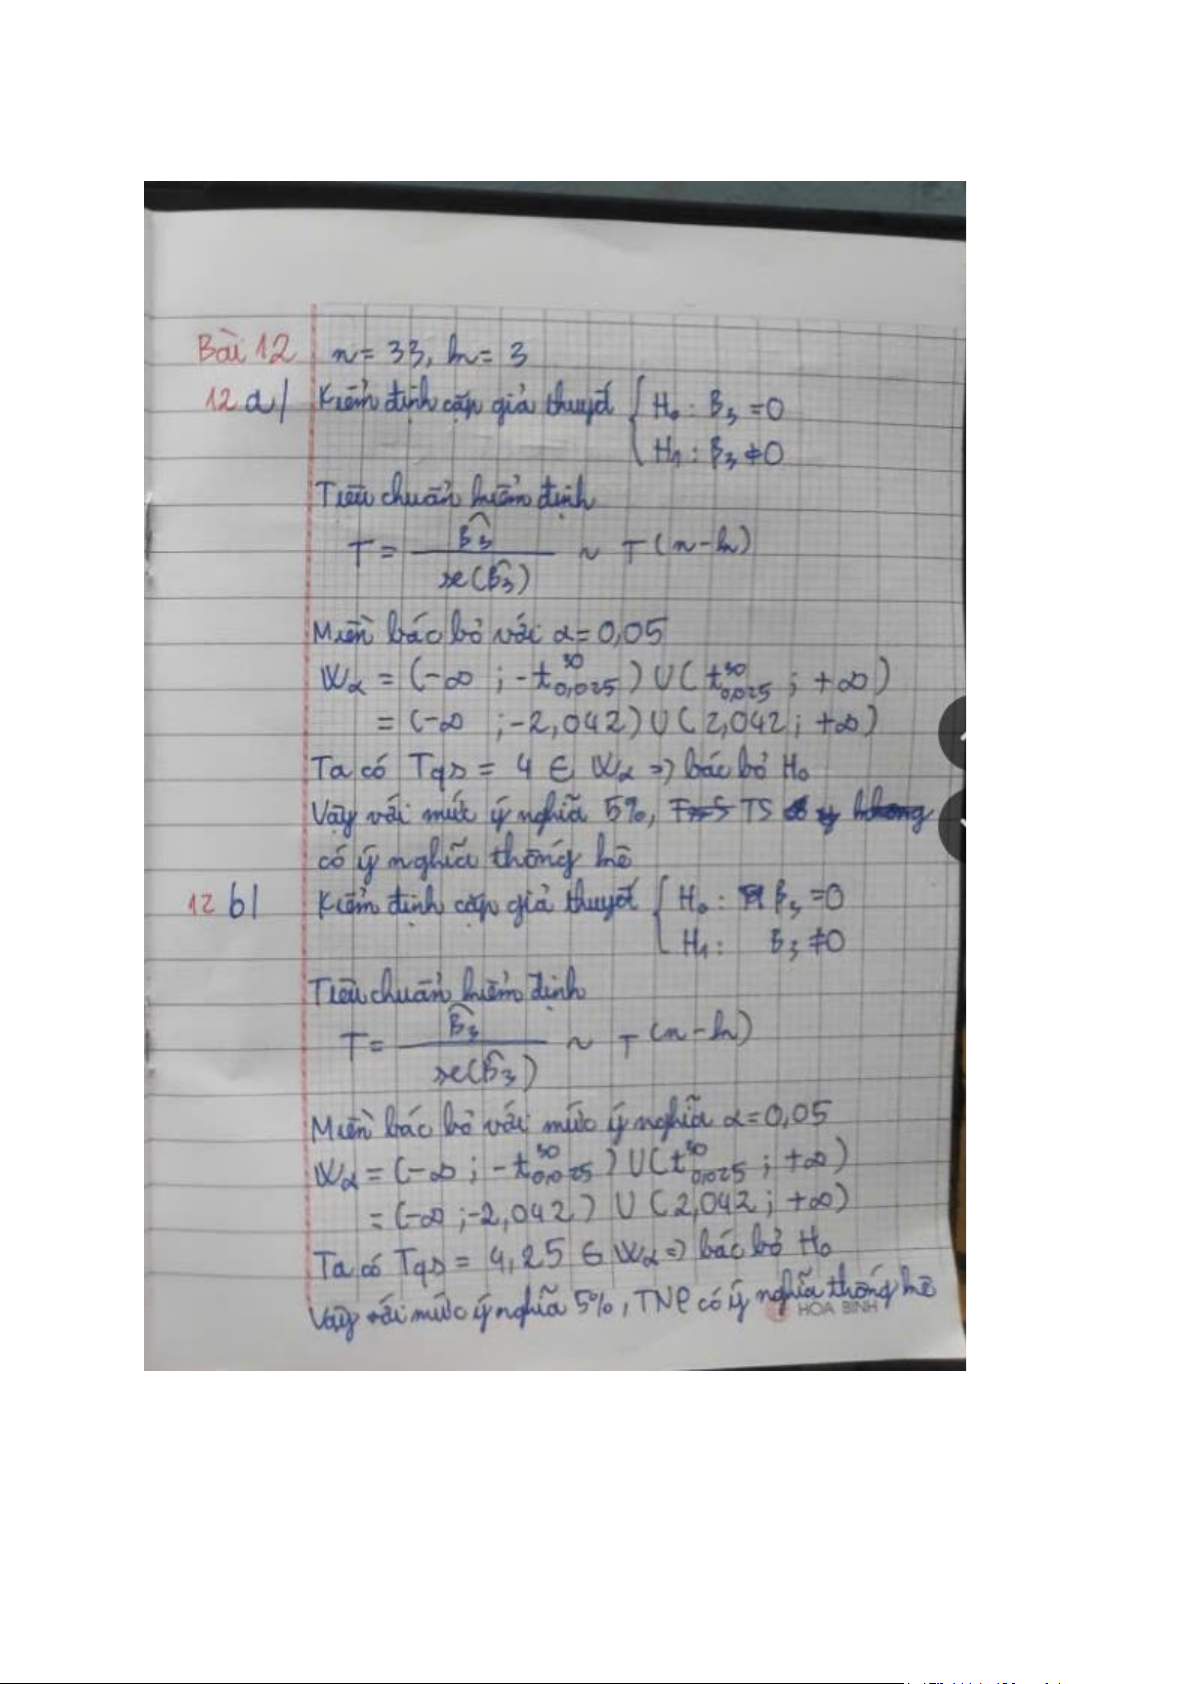 Bài 12 n = 33, k = 3
12 a/ Kiểm định cặp giả thuyết { H₀ : β₃ = 0
H₁ : β₃ ≠ 0
Tiêu chuẩn kiểm định
T = β̂₃ / se(β̂₃) ~ T(n-k)
Miền bác bỏ với α = 0,05
Wα = (-∞ ; -t³⁰0,025) ∪ (t³⁰0,025 ; +∞)
= (-∞ ; -2,042) ∪ (2,042 ; +∞)
Ta có Tqs = 4 ∈ Wα => bác bỏ H₀
Vậy với mức ý nghĩa 5%, TS
có ý nghĩa thống kê
12 b/ Kiểm định cặp giả thuyết { H₀ : β₃ = 0
H₁ : β₃ ≠ 0
Tiêu chuẩn kiểm định
T = β̂₃ / se(β̂₃) ~ T(n-k)
Miền bác bỏ với mức ý nghĩa α = 0,05
Wα = (-∞ ; -t³⁰0,025) ∪ (t³⁰0,025 ; +∞)
= (-∞ ; -2,042) ∪ (2,042 ; +∞)
Ta có Tqs = 4,25 ∈ Wα => bác bỏ H₀
Vậy với mức ý nghĩa 5%, TNP có ý nghĩa thống kê
HOA BINH